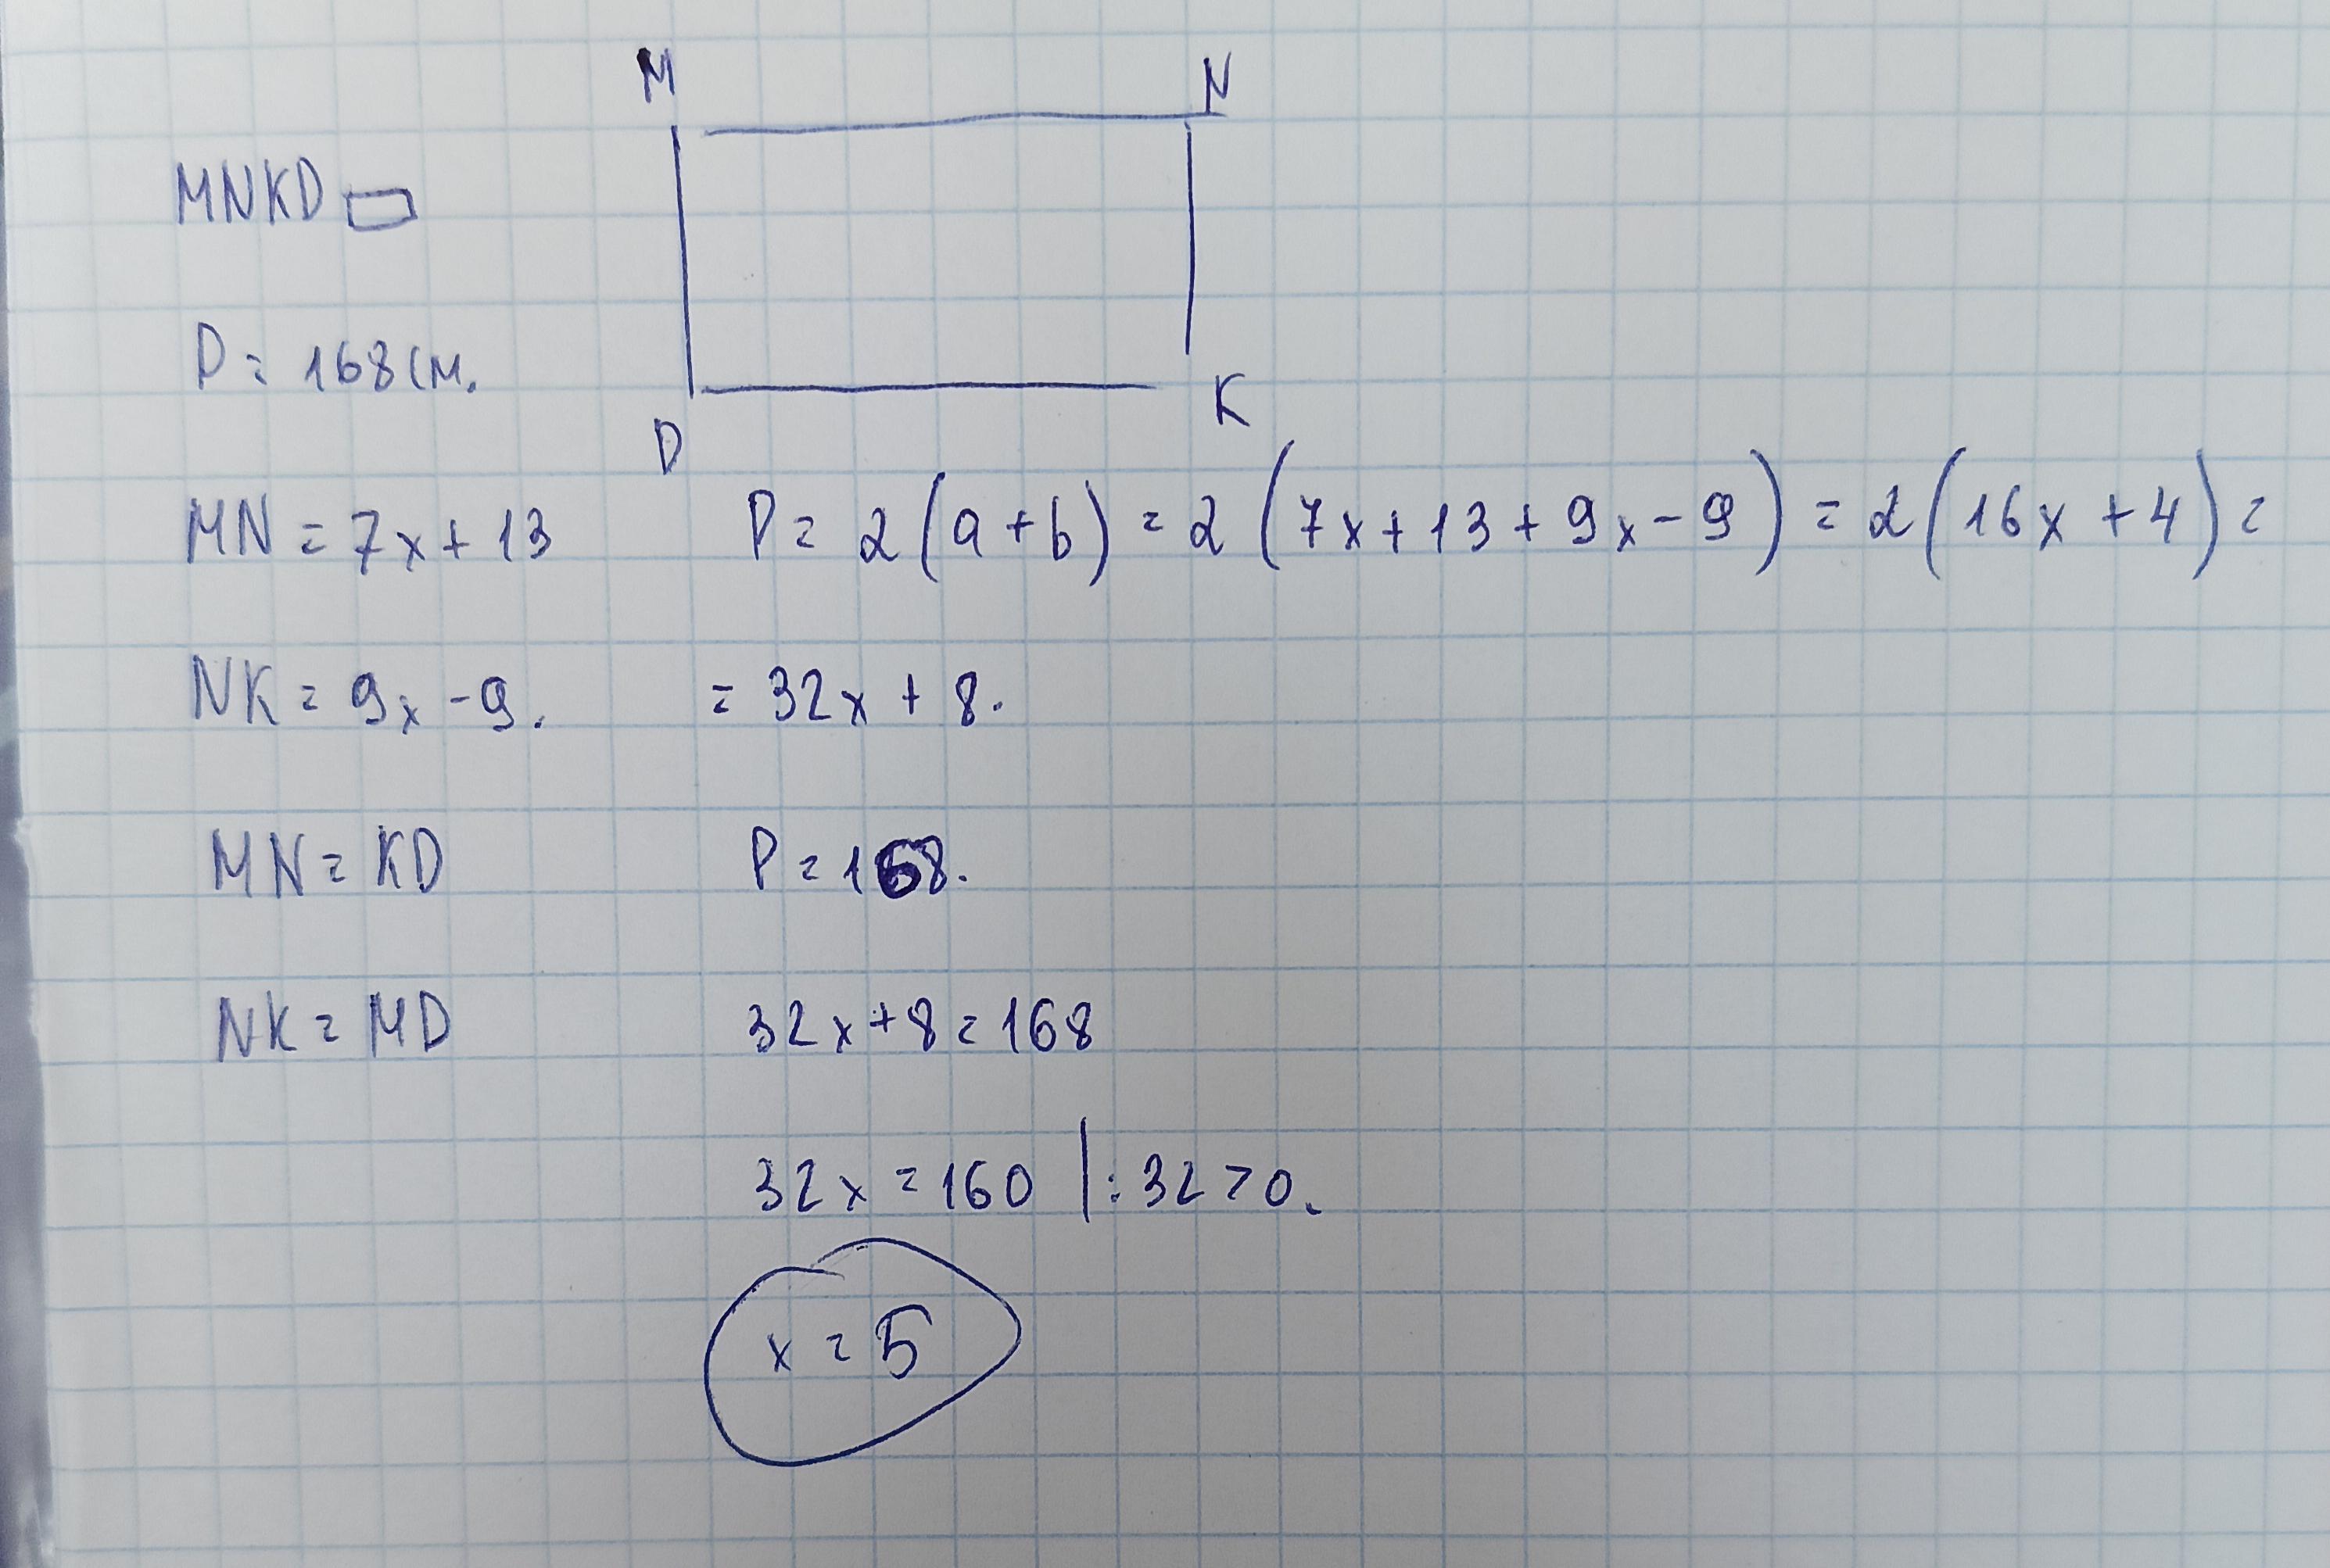 M N
MNKD
P = 168 см.
D K
MN = 7x + 13
P = 2(a + b) = 2(7x + 13 + 9x - 9) = 2(16x + 4) =
NK = 9x - 9.
= 32x + 8.
MN = KD
P = 168.
NK = MD
32x + 8 = 168
32x = 160 | : 32 > 0.
x = 5